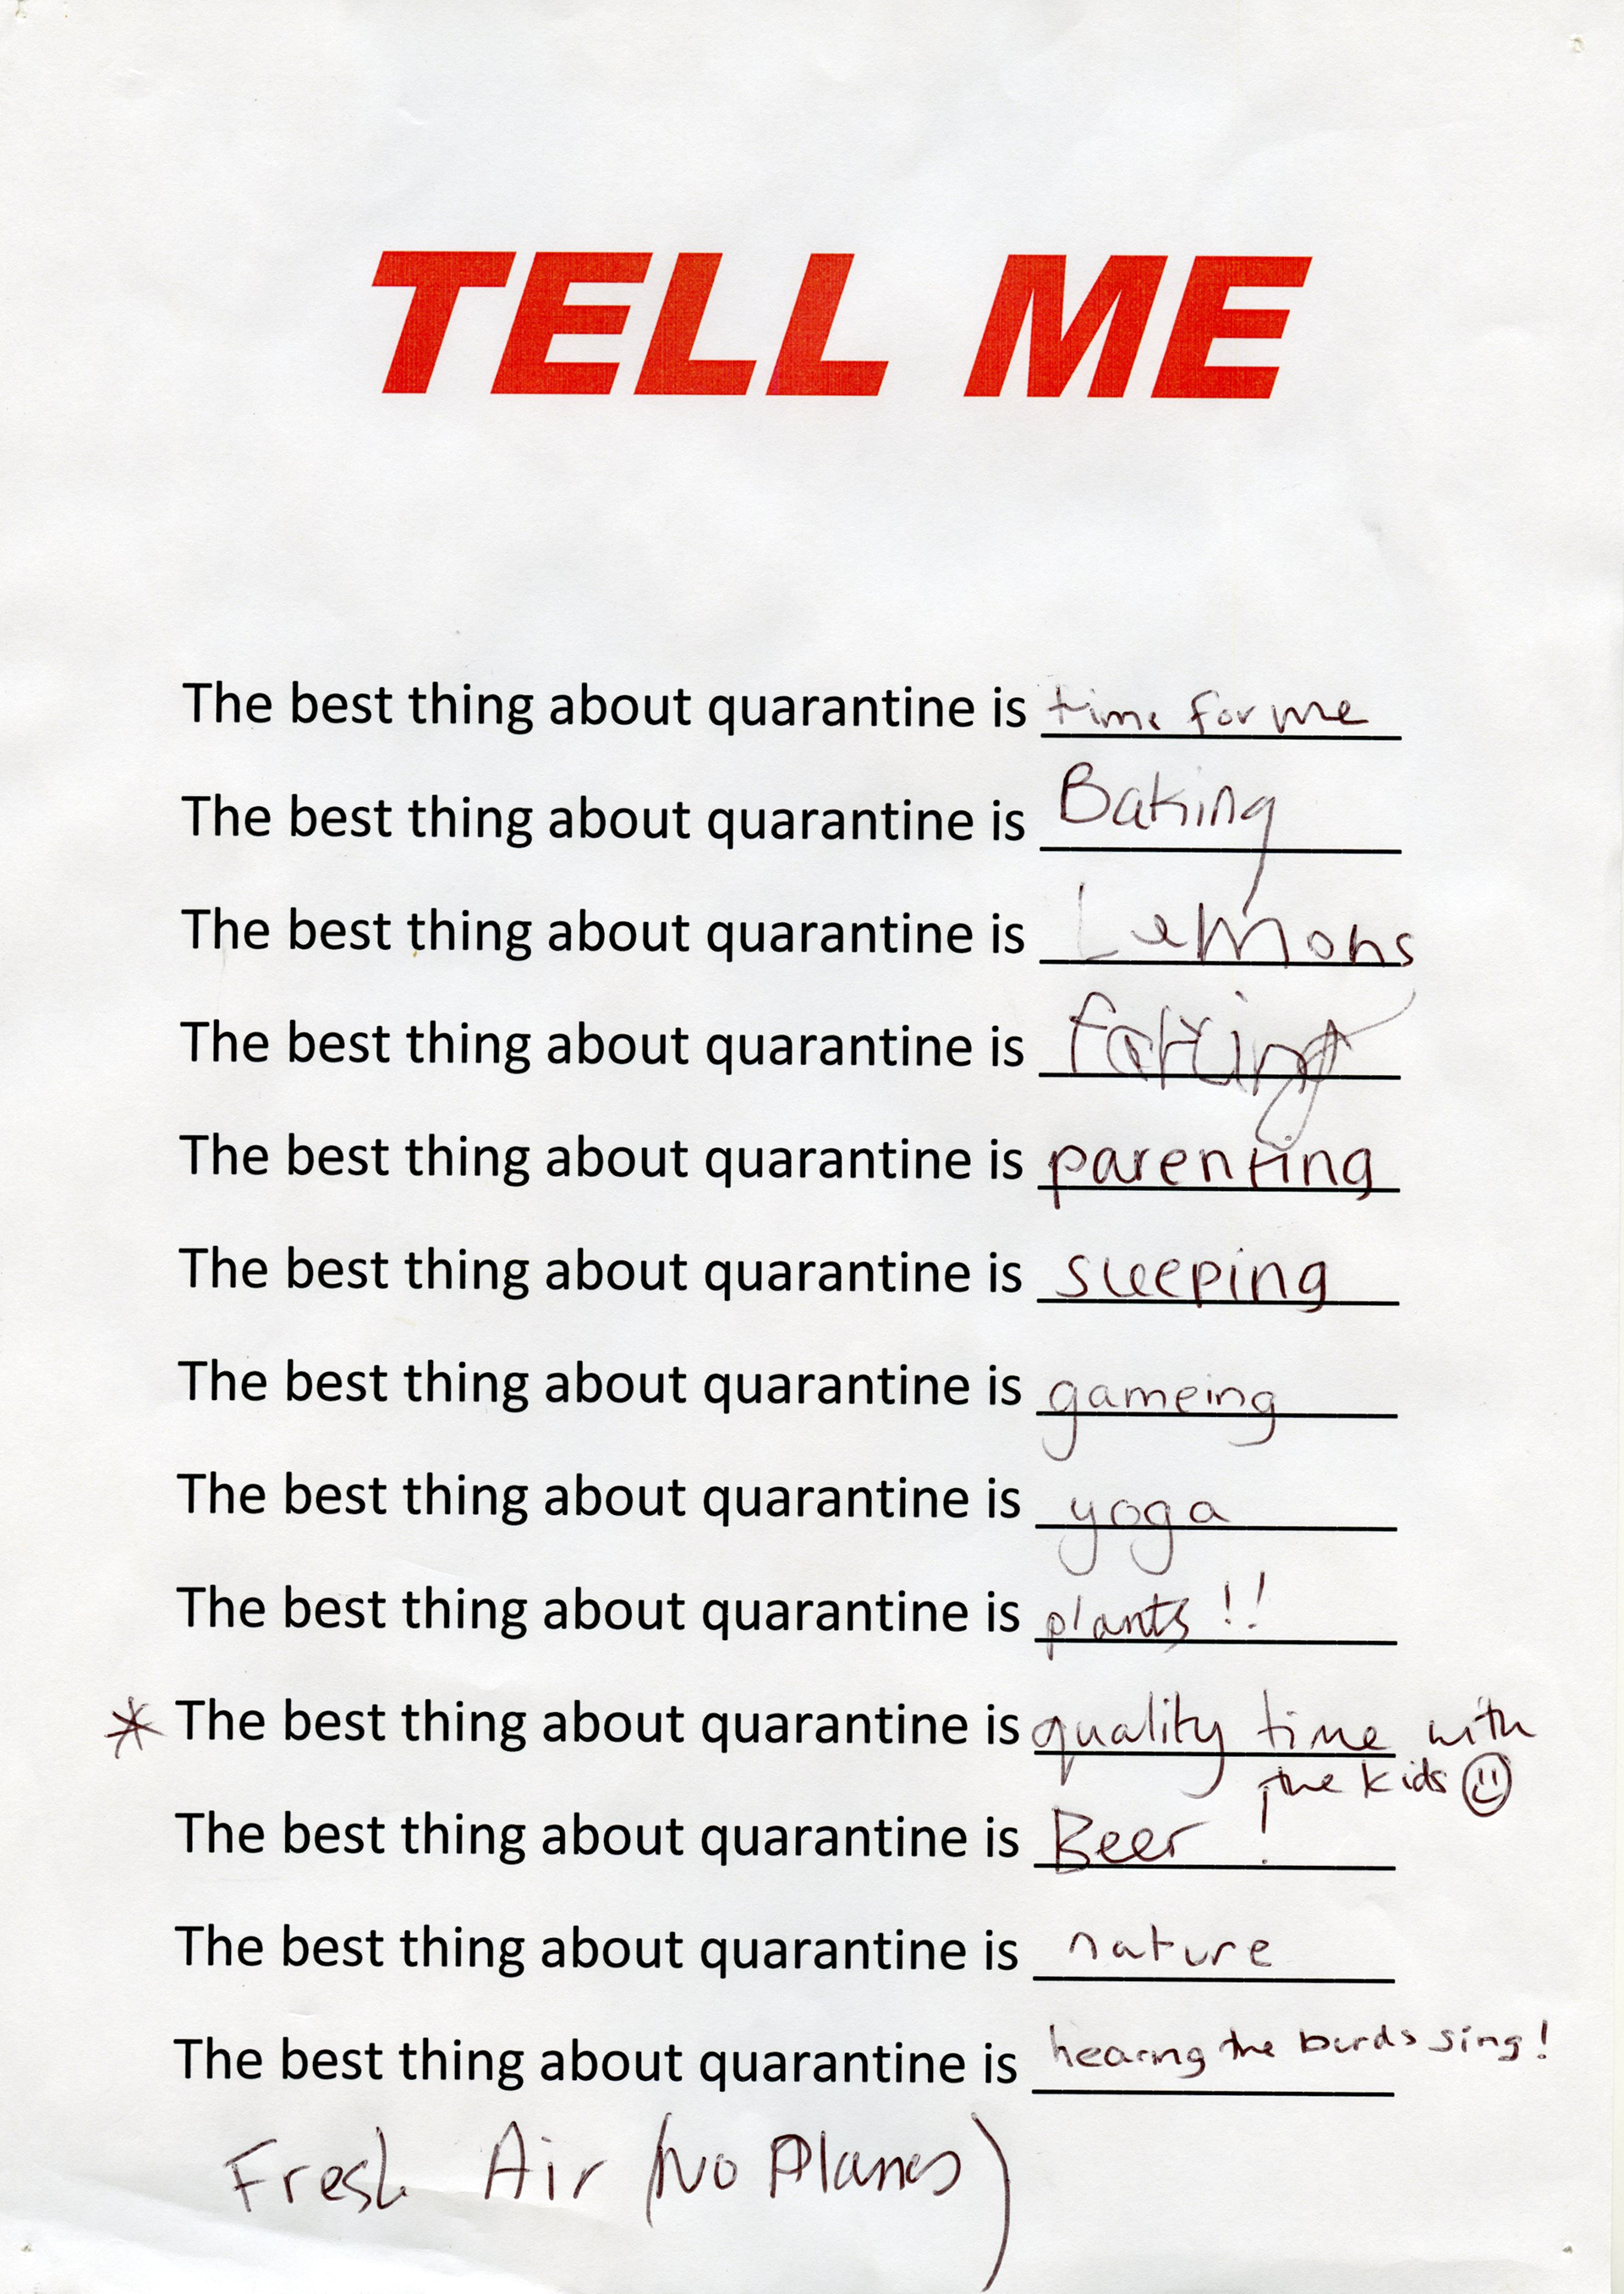 TELL ME
The best thing about quarantine is time for me
The best thing about quarantine is Baking
The best thing about quarantine is Lemons
The best thing about quarantine is farting
The best thing about quarantine is parenting
The best thing about quarantine is sleeping
The best thing about quarantine is gameing
The best thing about quarantine is yoga
The best thing about quarantine is plants!!
* The best thing about quarantine is quality time with
the kids
The best thing about quarantine is Beer!
The best thing about quarantine is nature
The best thing about quarantine is hearing the birds sing!
Fresh Air (No Planes)